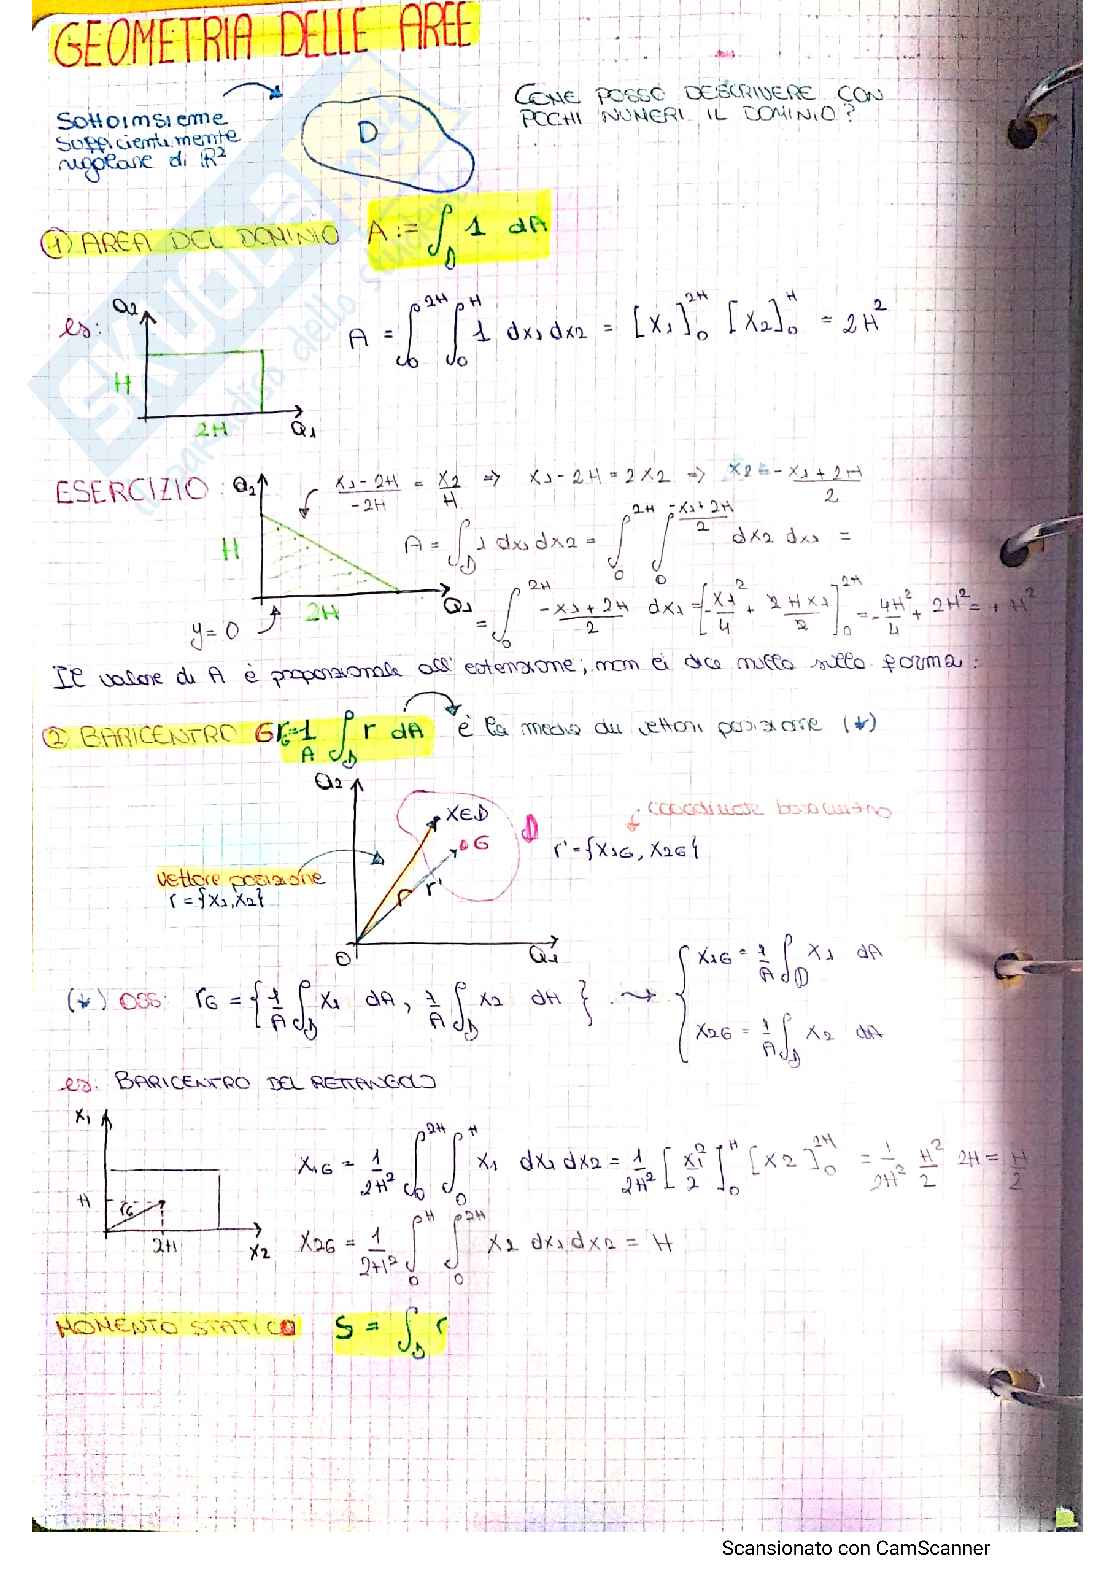 GEOMETRIA DELLE AREE
Sottoinsieme
sufficientemente
regolare di ℝ²
D
COME POSSO DESCRIVERE CON
POCHI NUMERI IL DOMINIO?
① AREA DEL DOMINIO A := ∫_D 1 dA
es:
a₂
H
2H
a₁
A = ∫_0^{2H} ∫_0^H 1 dx₁ dx₂ = [x₁]_0^{2H} [x₂]_0^H = 2H²
ESERCIZIO:
a₂
H
2H
a₁
y=0
(x₁-2H)/(-2H) = x₂/H ⇒ x₁-2H = 2x₂ ⇒ x₂ = (-x₁+2H)/2
A = ∫_D 1 dx₁ dx₂ = ∫_0^{2H} ∫_0^{(-x₁+2H)/2} dx₂ dx₁ =
= ∫_0^{2H} (-x₁+2H)/2 dx₁ = [-x₁²/4 + 2Hx₁/2]_0^{2H} = -4H²/4 + 2H² = + H²
Il valore di A è proporzionale all'estensione; non ci dice nulla sulla forma.
② BARICENTRO G r_G = 1/A ∫_D r dA è la media dei vettori posizione (*)
a₂
x∈D
G
D
r'
O
a₁
vettore posizione
r = {x₁, x₂}
coordinate baricentro
r' = {x₁G, x₂G}
(*) OSS: r_G = {1/A ∫_D x₁ dA, 1/A ∫_D x₂ dA} ⇝ { x₁G = 1/A ∫_D x₁ dA
x₂G = 1/A ∫_D x₂ dA
es. BARICENTRO DEL RETTANGOLO
x₁
H
r_G
2H
x₂
x₁G = 1/2H² ∫_0^{2H} ∫_0^H x₁ dx₁ dx₂ = 1/2H² [x₁²/2]_0^H [x₂]_0^{2H} = 1/2H² H²/2 2H = H/2
x₂G = 1/2H² ∫_0^H ∫_0^{2H} x₂ dx₁ dx₂ = H
MOMENTO STATICO S = ∫_D r
Scansionato con CamScanner